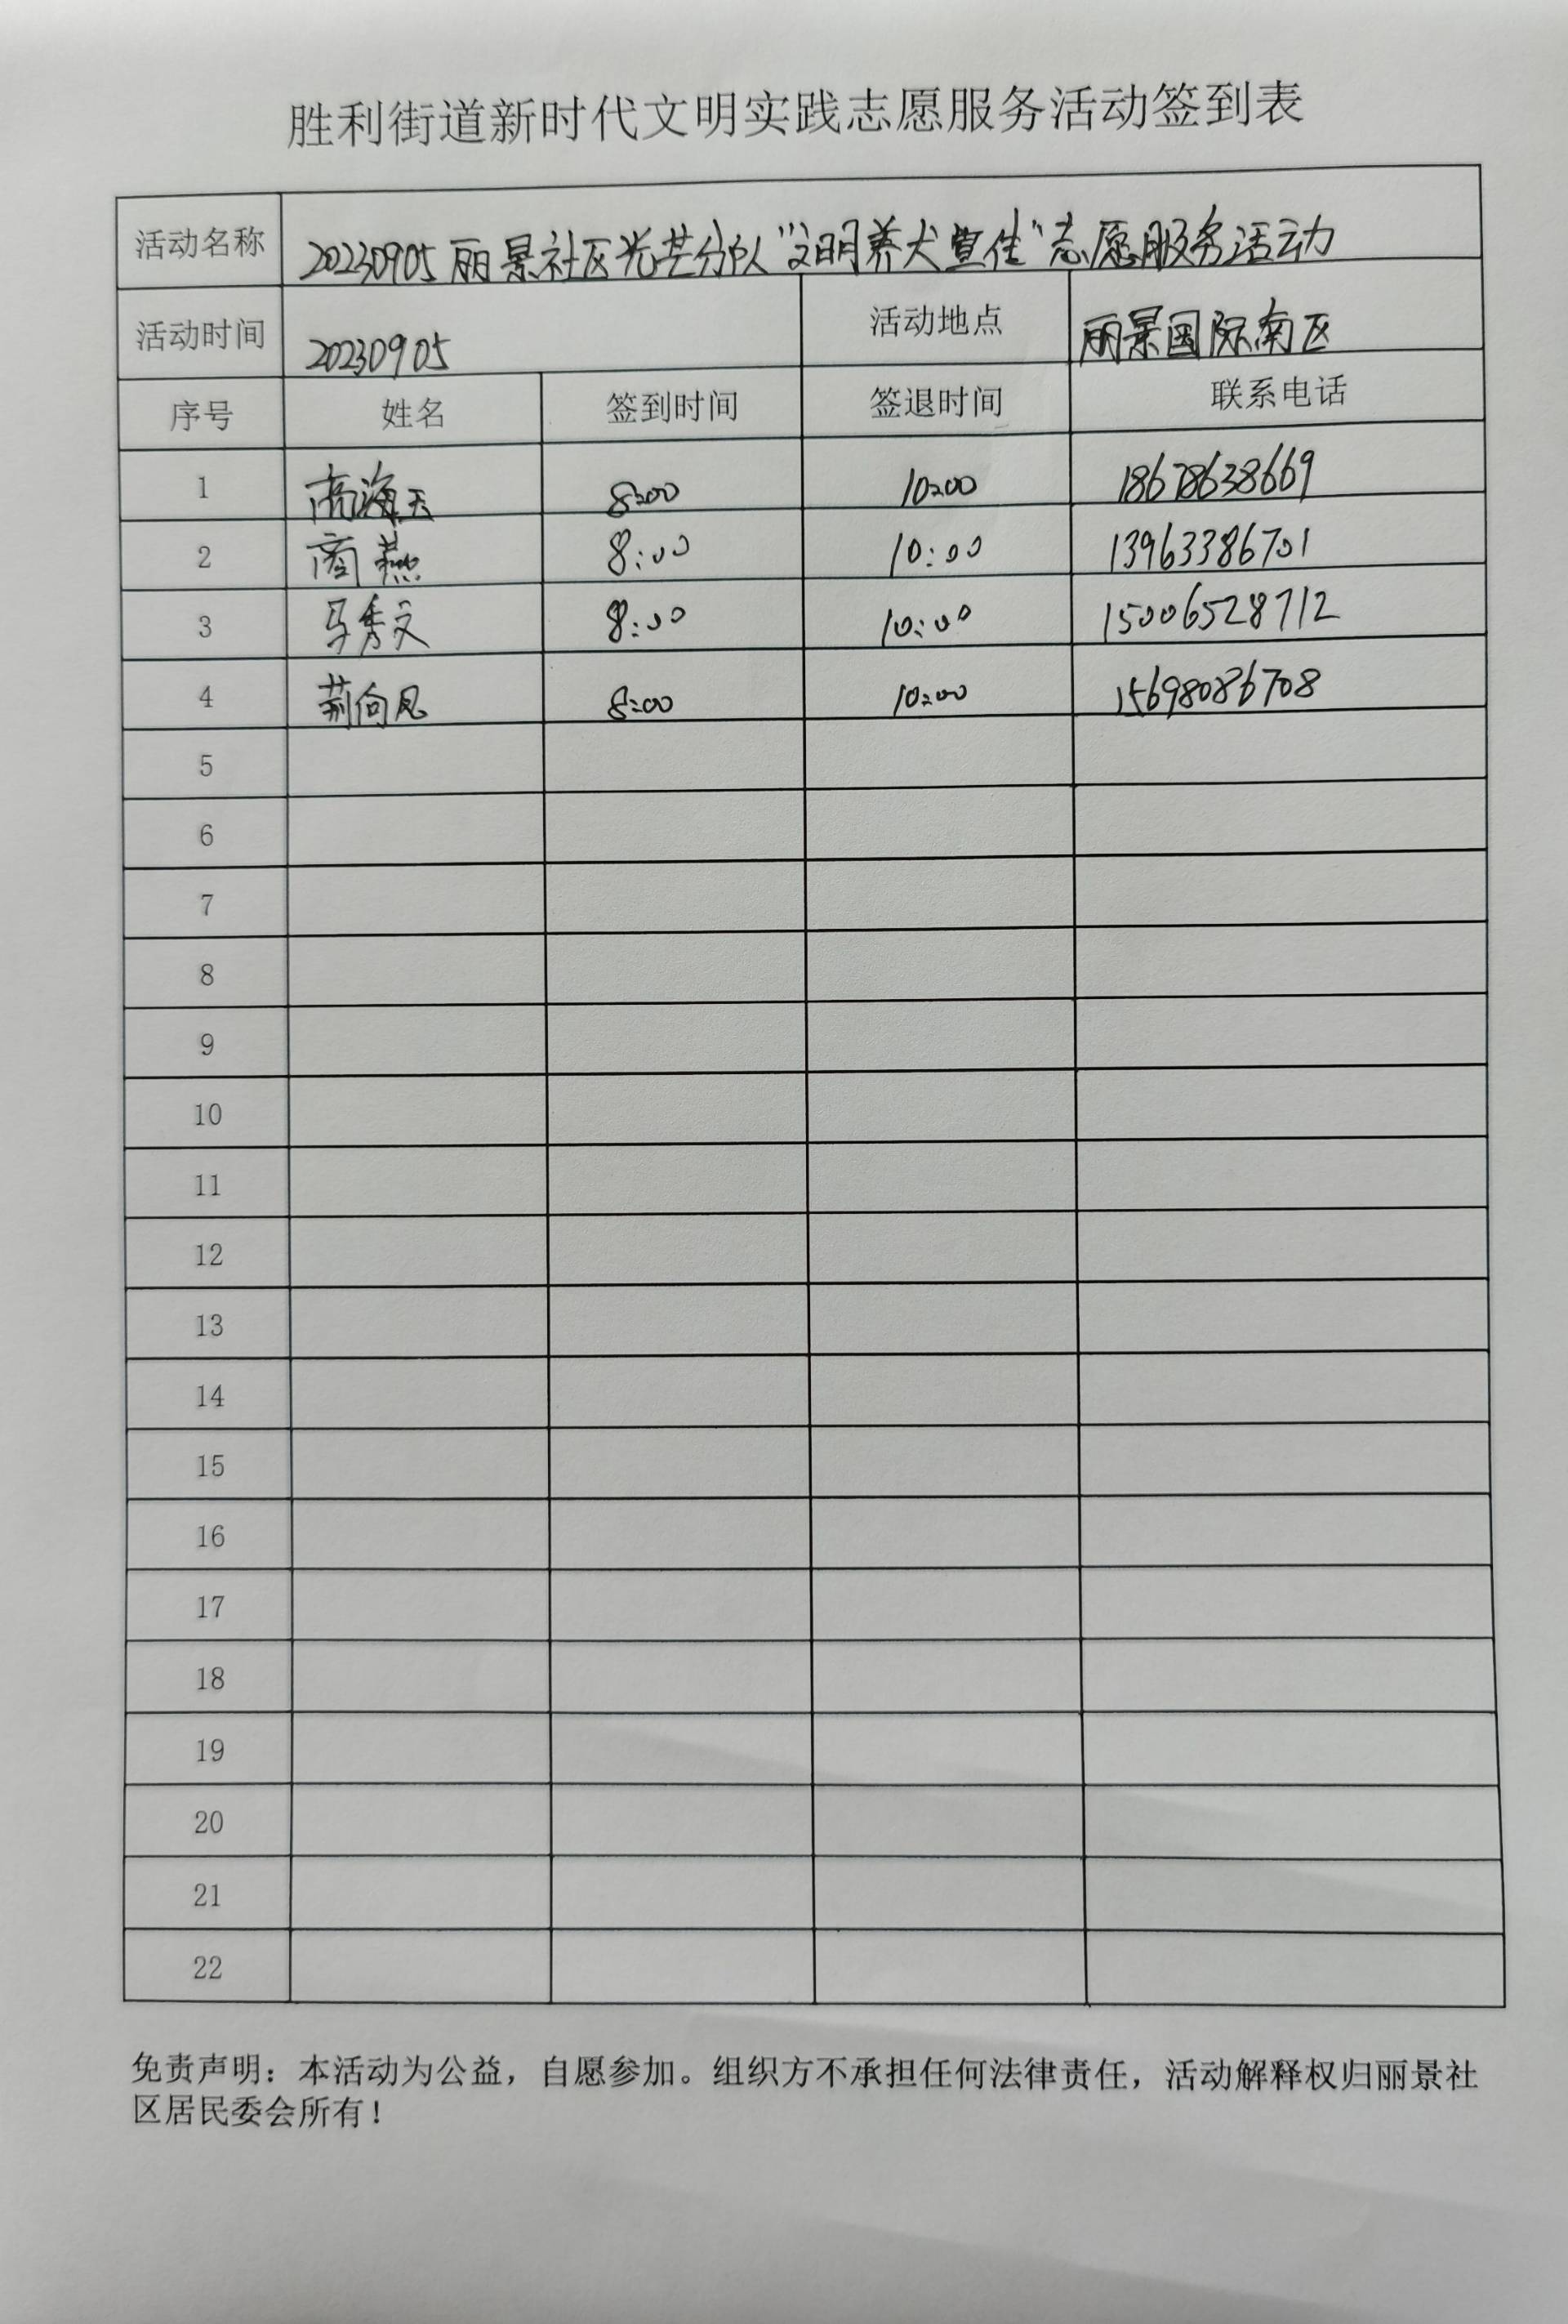 胜利街道新时代文明实践志愿服务活动签到表
活动名称 20230905丽景社区光芒分队“文明养犬宣传”志愿服务活动
活动时间 20230905 活动地点 丽景国际南区
序号 姓名 签到时间 签退时间 联系电话
1 商海天 8:00 10:00 18678638669
2 商燕 8:00 10:00 13963386701
3 马秀文 8:00 10:00 15006528712
4 荆向凤 8:00 10:00 15698086708
5
6
7
8
9
10
11
12
13
14
15
16
17
18
19
20
21
22
免责声明：本活动为公益，自愿参加。组织方不承担任何法律责任，活动解释权归丽景社
区居民委会所有！